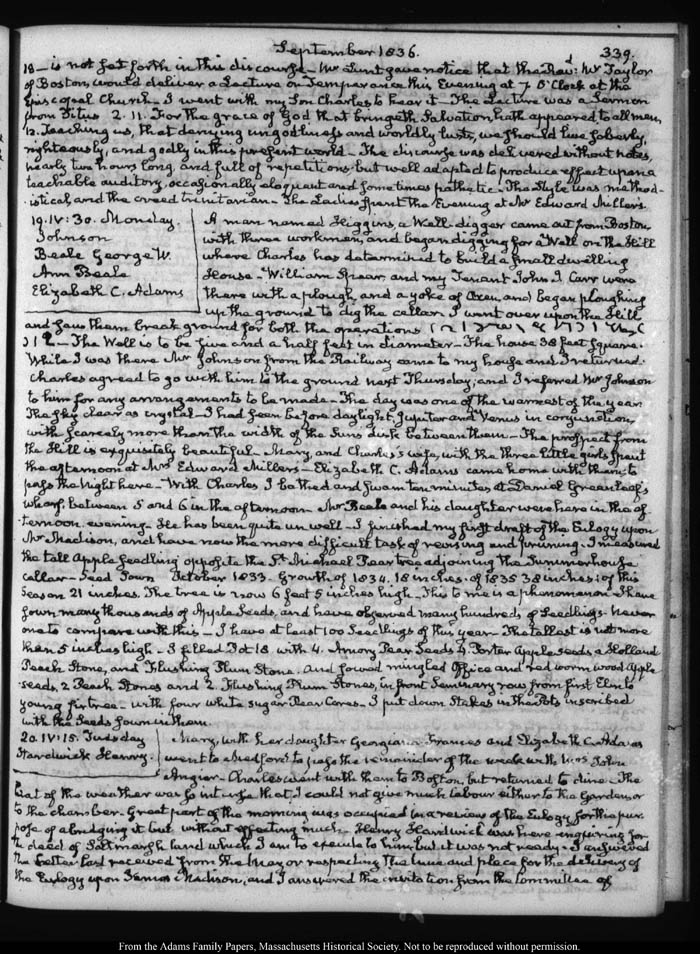 September 1836.
339.
18— is not set forth in this discourse— Mr Lunt gave notice that the Revd. Mr Taylor
of Boston, would deliver a Lecture on Temperance this Evening at 7 O'Clock at the
Episcopal Church— I went with my Son Charles to hear it— The Lecture was a Sermon
from Titus 2. 11. For the grace of God that bringeth Salvation, hath appeared to all men,
12. Teaching us, that denying ungodliness and worldly lusts, we should live soberly,
righteously, and godly in this present world— The discourse was delivered without notes,
nearly two hours long, and full of repetitions but well adapted to produce effect upon a
teachable auditory, occasionally eloquent and sometimes pathetic— The Style was method-
istical, and the creed trinitarian— The Ladies spent the Evening at Mr Edward Miller's
19. IV:30. Monday.
Johnson
Beale George W.
Ann Beale
Elizabeth C. Adams
A man named Higgins, a Well-digger came out from Boston
with three workmen, and began digging for a Well on the Hill
where Charles has determined to build a small dwelling
House— William Spear, and my Tenant John J. Carr were
there with a plough, and a yoke of Oxen, and began ploughing
up the ground to dig the cellar. I went over upon the Hill
and saw them break ground for both the operations
— The Well is to be five and a half feet in diameter— The house 38 feet Square.
While I was there Mr Johnson from the Railway came to my house and I returned.
Charles agreed to go with him to the ground next Thursday, and I referred Mr Johnson
to him for any arrangements to be made— The day was one of the warmest of the year
The sky clear as crystal— I had seen before daylight, Jupiter and Venus in conjunction,
with scarcely more than the width of the Suns disk between them— The prospect from
the Hill is exquisitely beautiful— Mary, and Charles's wife, with the three little girls spent
the afternoon at Mrs Edward Millers— Elizabeth C. Adams came home with them to
pass the Night here— With Charles I bathed and swam ten minutes at Daniel Greenleaf's
wharf, between 5 and 6 in the afternoon— Mr Beale and his daughter were here in the af-
ternoon evening— He has been quite unwell— I finished my first draft of the Eulogy upon
Mr Madison, and have now the more difficult task of revising and pruning— I measured
the tall Apple seedling opposite the St. Michael Pear tree adjoining the Summerhouse
cellar— Seed Sown October 1833. Growth of 1834. 18 inches: of 1835 38 inches: of this
Season 21 inches. The tree is now 6 feet 5 inches high— This to me is a phenomenon I have
sown many thousands of Apple Seeds, and have observed many hundreds of Seedlings— never
one to compare with this— I have at least 100 Seedlings of this year— The tallest is not more
than 5 inches high— I filled Pot 18 with 4. Amory Pear Seeds 4. Porter Apple seeds, a Holland
Peach Stone, and Flushing Plum Stone. And sowed mingled Office and red worm wood Apple
seeds, 2 Peach Stones and 2. Flushing Plum Stones, in front Seminary row from first Elm to
young fir tree— with four white Sugar Pear Cores— I put down Stakes in the Pots inscribed
with the Seeds sown in them.
20. IV:15. Tuesday
Hardwick Henry.
Mary, with her daughter Georgiana Frances and Elizabeth C. Adams
went to Medford to pass the remainder of the week with Mrs John
Angier— Charles went with them to Boston, but returned to dine— The
heat of the weather was so intense that I could not give much labour either to the Garden or
to the chamber— Great part of the morning was occupied in a review of the Eulogy for the pur-
pose of abridging it but without effecting much— Henry Hardwick was here enquiring for
the deed of Saltmarsh land which I am to execute to him but it was not ready— I answered
the Letter last received from the Mayor respecting the time and place for the delivery of
the Eulogy upon James Madison, and I answered the invitation from the Committee of
From the Adams Family Papers, Massachusetts Historical Society. Not to be reproduced without permission.